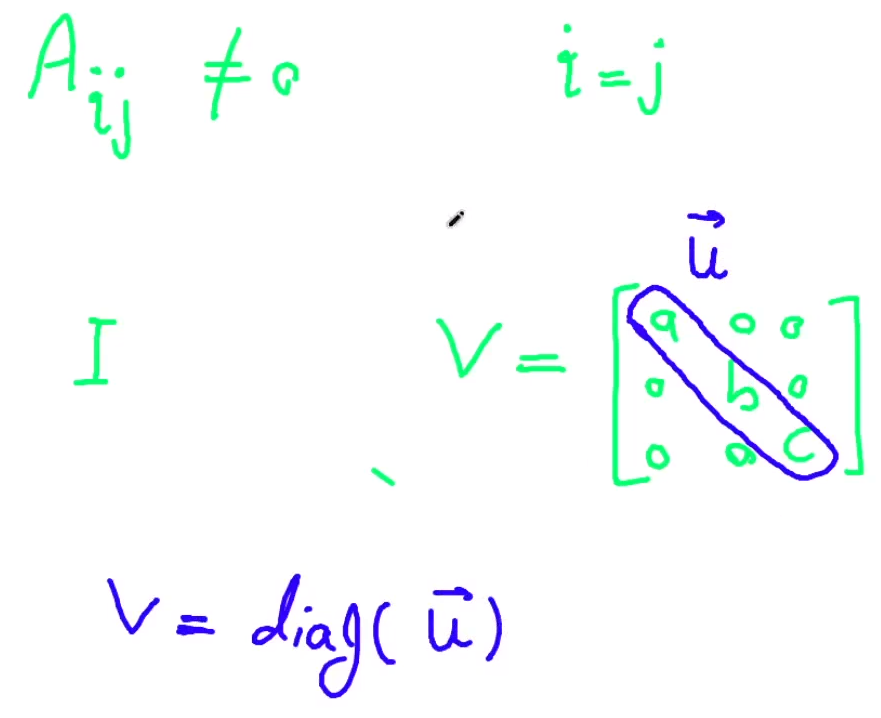 A_ij ≠ 0 i = j
u⃗
I V = [ a 0 0
0 b 0
0 0 c ]
V = diag( u⃗ )